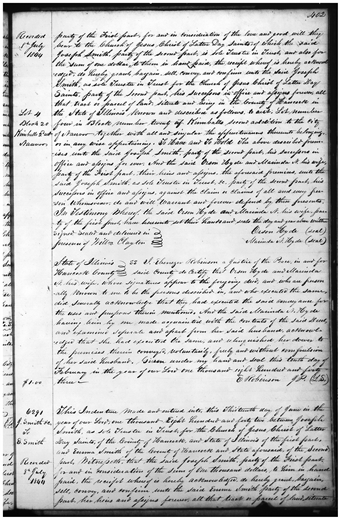 402
Recorded
5th July
1844
party of the First part, for and in consideration of the love and good will they
bear to the Church of Jesus Christ of Latter Day Saints of which the said
Joseph Smith, party of the second part, is sole Trustee in Trust, and also for
the sum of one dollar, to them in hand paid, the receipt whereof is hereby acknowl-
edged, do hereby grant, bargain, sell, convey and confirm unto the said Joseph
Smith, as sole Trustee in Trust, for the Church of Jesus Christ of Latter Day
Saints, party of the second part, his successors in office and assigns forever, all
that tract or parcel of land, situate and lying in the County of Hancock in
Lot 4
Block 20
Kimballs 2nd
Nauvoo
the State of Illinois, known and described as follows to wit. Lot number
four in Block number twenty of Kimballs second addition to the city
of Nauvoo. Together with all and singular the appurtenances thereto belonging
or in any wise appertaining. To Have and to Hold the above described premi-
ses unto the said Joseph Smith party of the second part, his successors in
office and assigns for ever. And the said Orson Hyde and Marinda N. his wife,
party of the First part, their heirs and assigns, the aforesaid premises, unto the
said Joseph Smith, as sole Trustee in Trust, party of the second part, his
successors in office and assigns, against the claim or claims of all and every per-
son whomsoever, do and will Warrant and forever defend by these presents.
In Testimony Whereof the said Orson Hyde and Marinda N. his wife, party
of the first part have hereunto set their hands and seals the day and year above written
Signed Sealed and delivered in
presence of Willm Clayton
Orson Hyde (seal)
Marinda N. Hyde (seal)
State of Illinois
Hancock County
SS I Ebenezer Robinson a Justice of the Peace, in and for
said County do Certify that Orson Hyde and Marinda
N. his wife, whose signatures appear to the forgoing deed, and who are person-
ally known to me to be the persons described in, and who executed the same,
did severally acknowledge that they had executed the said conveyance for
the uses and purposes therein mentioned. And the said Marinda N. Hyde
having been by me made acquainted with the contents of the said Deed,
and examined separate and apart from her said husband, acknowl-
edged that she had executed the same, and relinquished her dower to
the premises therein conveyed, voluntarily, freely and without compulsion
of her said Husband. Given under my hand and seal this tenth day of
February, in the year of our Lord one thousand eight hundred and forty
three
E Robinson J.P. (Seal)
$1.00
6291
J Smith
to
E Smith
Recorded
5th July
1844
This Indenture Made and entered into, this Thirteenth day of June in the
year of our Lord, one thousand Eight Hundred and forty two between Joseph
Smith, as sole Trustee in Trust, for the Church of Jesus Christ of Latter
Day Saints, of the County of Hancock, and State of Illinois of the first part,
and Emma Smith of the County of Hancock and State aforesaid of the second
part, Witnesseth, that the said Joseph Smith, party of the First part,
for and in consideration of the sum of one thousand dollars, to him in hand
paid, the receipt whereof is hereby acknowledged, do hereby grant, bargain,
sell, convey, and confirm, unto the said Emma Smith party of the second
part, her heirs and assigns forever, all that tract or parcel of land, situate